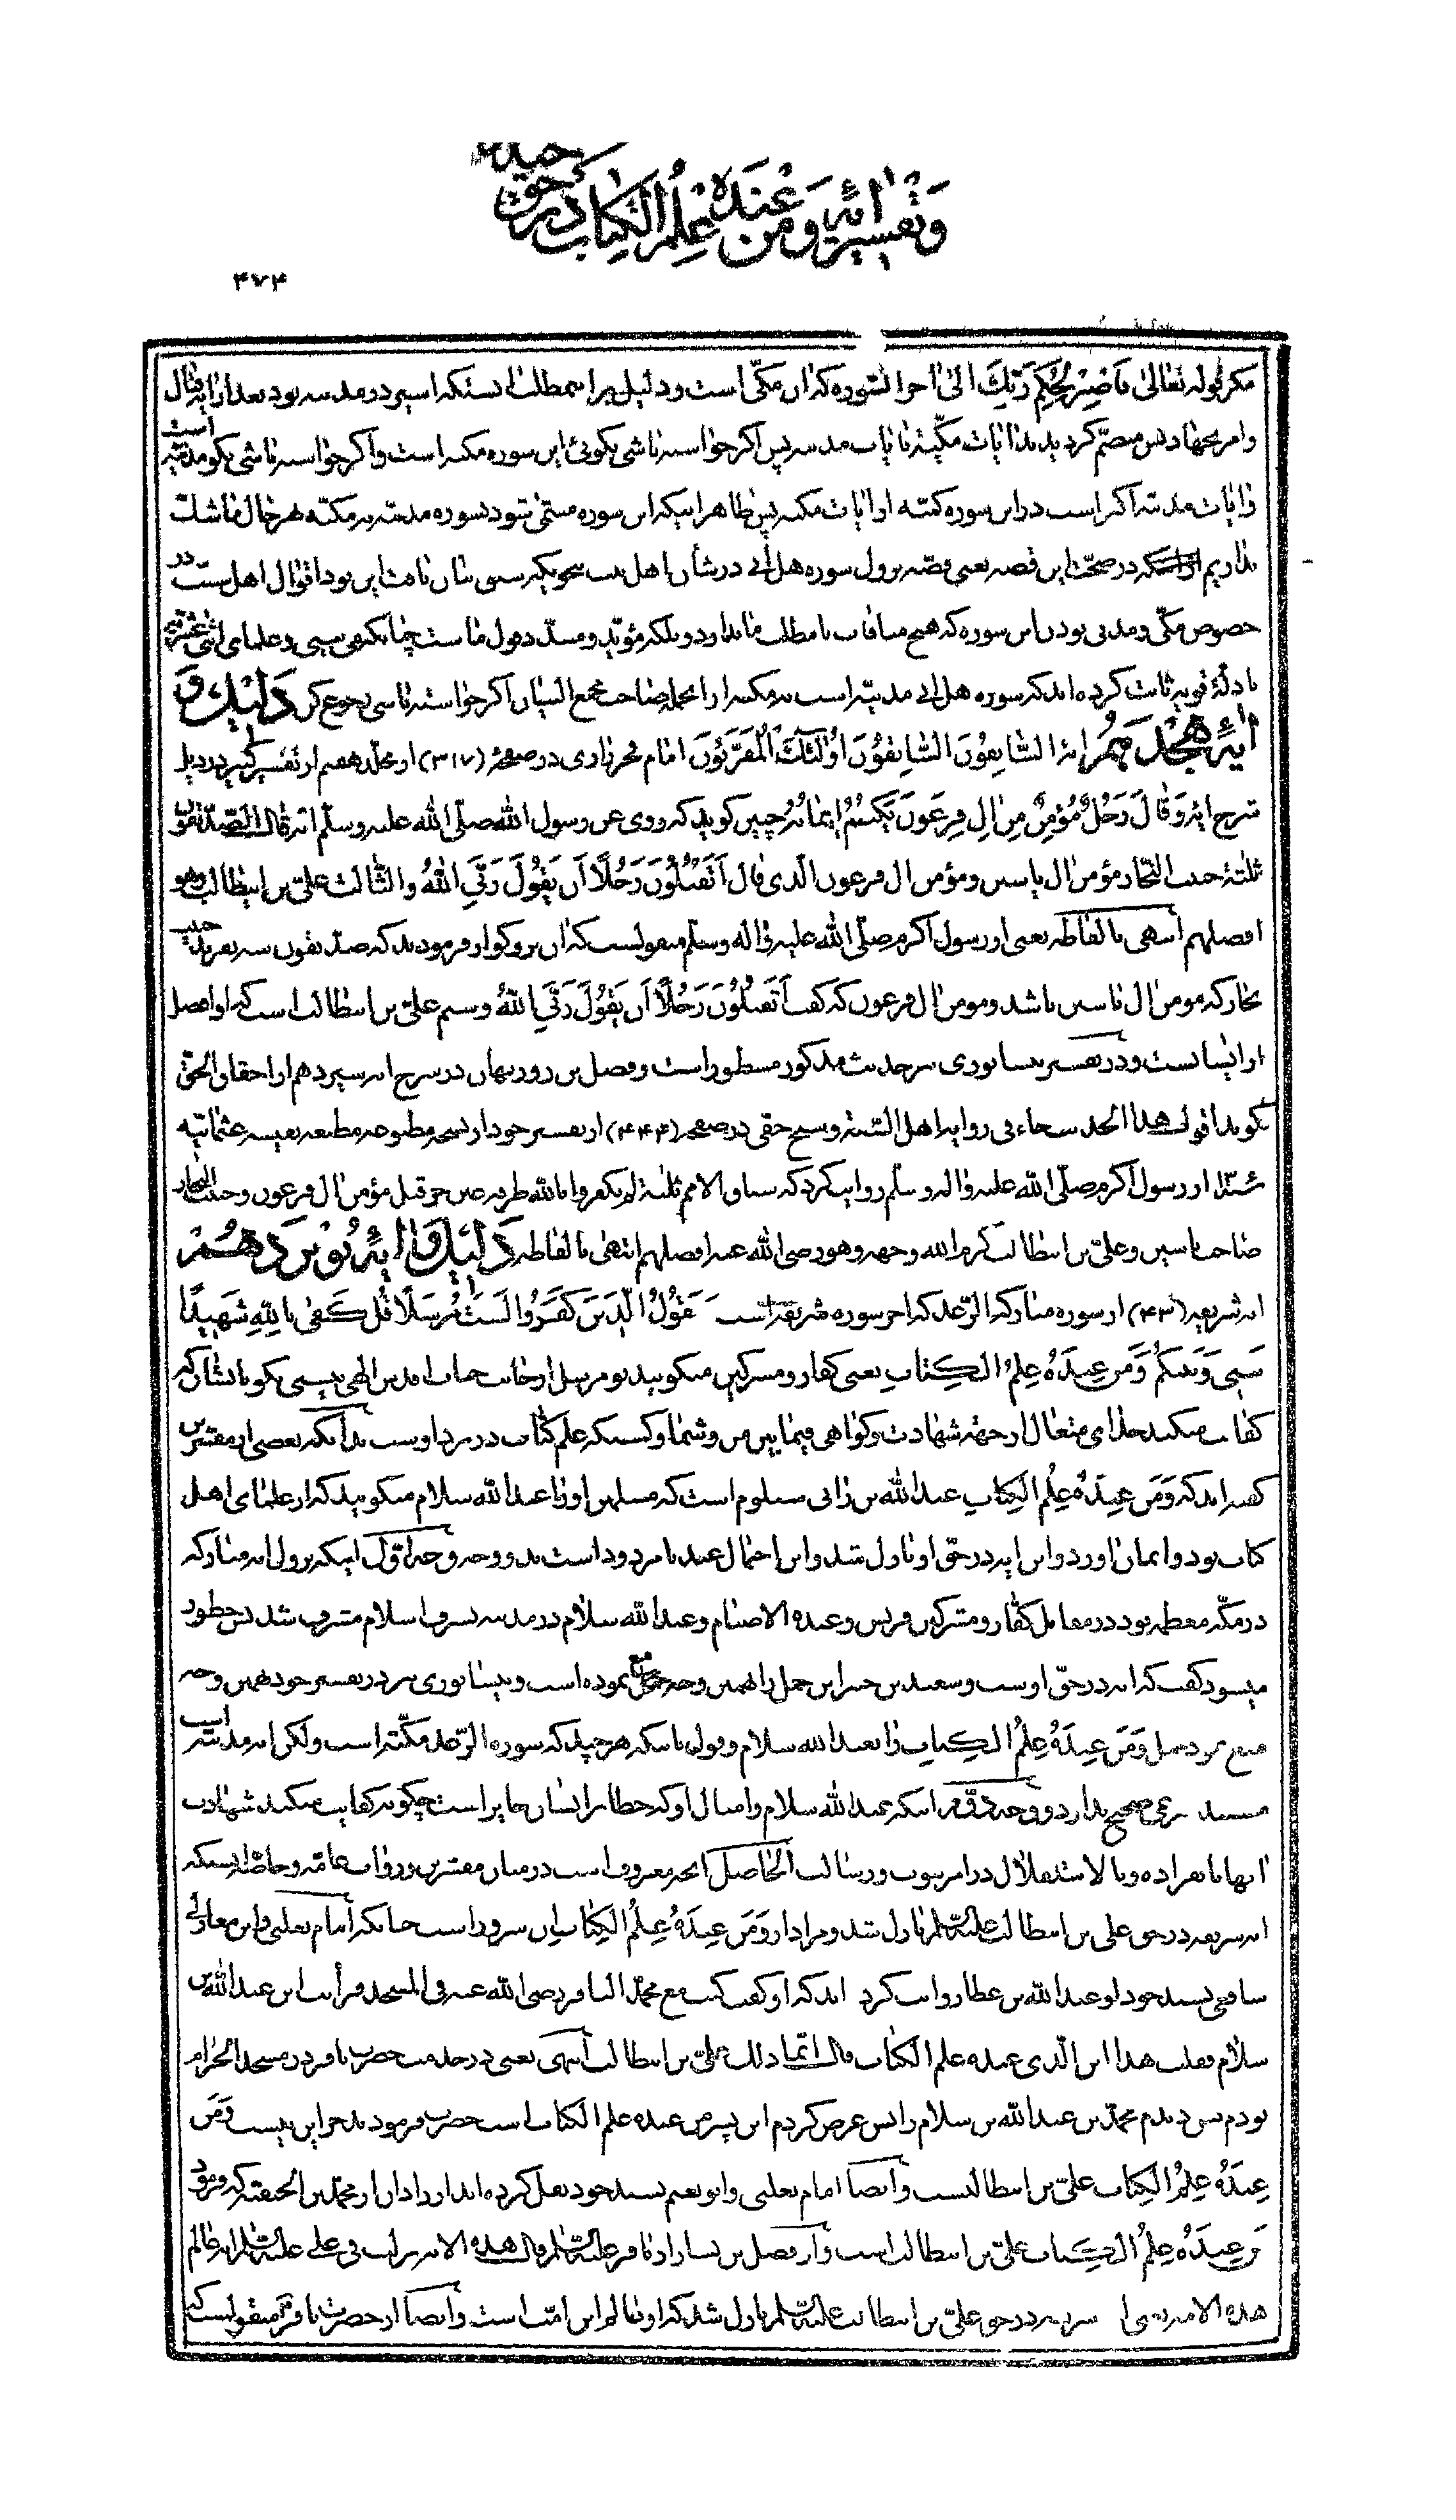 وتفسیر آیه ومن عنده علم الکتاب در حق
۴۷۴
مکر قوله تعالی فاصبر لحکم ربک الی اخر السوره که آن مکی است و دلیل بر این مطلب اینستکه اسیر در مدینه بود بعد از آیه قتال
وامر بجهاد پس منضم کردید بدا ایات مکیه با یات مدنیه پس اکر خواسته باشی بکوئی این سوره مکیه است واکر خواسته باشی بکو مدنیه است
وایات مدنیه اکثر است در این سوره کنه از ایات مکیه پس ظاهر اینکه این سوره مسمی شود بسوره مدنیه نه مکیه بهر حال ما شک
نداریم در صحت این قصه یعنی قصه نزول سوره هل اتی در شأن اهل بیت بودن اقوال اهل سنت در
خصوص مکی و مدنی بودن این سوره که هیچ منافات با مطلب ما ندارد و بلکه مؤید و مسدد قول ما است چنانکه می بینی و علمای اثنی عشریه
با دلهٔ قویه ثابت کرده اند که سوره هل اتی مدنیه است نه مکیه از انجمله صاحب مجمع البیان اکر خواسته باشی رجوع کن دلیل و
آیه هجدهم آیهٔ السابقون السابقون اولئک المقربون امام فخر رازی در صفحهٔ (۳۱۷) از مجلد هفتم از تفسیر کبیر در ذیل
شرح آیه وقال رجل مؤمن من ال فرعون یکتم ایمانه چنین کوید که روی عن رسول الله صلی الله علیه وسلم انه قال الصدیقون
ثلثه حبیب النجار مؤمن ال یاسین و مؤمن ال فرعون الذی قال اتقتلون رجلا ان یقول ربی الله والثالث علی بن ابیطالب وهو
افضلهم انتهی بالفاظه یعنی از رسول اکرم صلی الله علیه واله وسلم منقولست که آن بزرکوار فرمودند که صدیقون سه نفرند حبیب
نجار که مومن ال یاسین باشد و مومن ال فرعون که کفت اتقتلون رجلا ان یقول ربی الله وسیم علی بن ابیطالب است که او افضل
از ایشانست و در تفسیر نیشابوری نیز حدیث مذکور مسطور است و فضل بن روزبهان در شرح آیه سیزدهم از احقاق الحق
کوید اقول هذا الحدیث جاء فی روایه اهل السنه و شیخ حقی در صفحه (۴۴۴) از تفسیر خود از نسخه مطبوعه مطبعه نفیسه عثمانیه
از رسول اکرم صلی الله علیه واله وسلم روایت کرد که سباق الامم ثلثه لم یکفروا بالله طرفه عین حزقیل مؤمن ال فرعون و حبیب النجار
صاحب یاسین و علی بن ابیطالب کرم الله وجهه وهو رضی الله عنه افضلهم انتهی بالفاظه دلیل و آیه نوزدهم
آیه شریفه (۴۳) از سوره مبارکه الرعد که اخر سوره شریفه است یقول الذین کفروا لست مرسلا قل کفی بالله شهیدا
بینی وبینکم ومن عنده علم الکتاب یعنی کفار و مشرکین میکویند تو مرسل از جانب جناب اقدس الهی نیستی بکو بایشان که
کفایت میکند خدای متعال از جههٔ شهادت و کواهی فیمابین من و شما و کسیکه علم کتاب در نزد اوست بدانکه بعضی از مفسرین
کفته اند که ومن عنده علم الکتاب عبدالله بن سلوم است که مسلمین او را عبدالله سلام میکویند که از علمای اهل
کتاب بود و ایمان اورد و این آیه در حق او نازل شد و این احتمال عندنا مردود است بدو وجه وجه اول اینکه نزول آیه مبارکه
در مکه معظمه بود در مقابل کفار و مشرکین قریش و عبده الاصنام و عبدالله سلام در مدینه بشرف اسلام مشرف شد پس چطور
میشود کفت که آیه در حق اوست و سعید بن جبیر این حمل را بهمین وجه منع نموده است و نیشابوری نیز در تفسیر خود همین وجه
منع نمود حمل ومن عنده علم الکتاب را بعبدالله سلام و قول باینکه هر چند که سوره الرعد مکیه است ولکن آیه مدنیه است
مستند شرعی صحیح ندارد و وجه دوم اینکه عبدالله سلام و امثال او که خطا بر ایشان جایز است چکونه کفایت میکند شهادت
انها بانفراده و بالاستقلال در امر نبوت و رسالت الحاصل انچه معروف است در میان مفسرین و روات عامه و خاصه اینستکه
آیه شریفه در حق علی بن ابیطالب علیه السلام نازل شد و مراد از ومن عنده علم الکتاب آن سرور است چنانکه امام ثعلبی و ابن مغازلی
شافعی بسند خود از عبدالله بن عطا روایت کرده اند که او کفت کنت مع محمد الباقر رضی الله عنه فی المسجد فرأیت ابن عبدالله بن
سلام فقلت هذا ابن الذی عنده علم الکتاب قال انما ذلک علی بن ابیطالب انتهی یعنی در خدمت حضرت باقر در مسجد الحرام
بودم پس دیدم محمد بن عبدالله بن سلام را پس عرض کردم این پسر من عنده علم الکتاب است حضرت فرمودند چنین نیست ومن
عنده علم الکتاب علی بن ابیطالبست وایضا امام ثعلبی و ابو نعیم بسند خود نقل کرده اند از زادان از محمد بن الحنفیه که فرمود
من عنده علم الکتاب علی بن ابیطالب است و از فضیل بن یسار از باقر علیه السلام قال هذه الایه نزلت فی علی علیه السلام انه عالم
هذه الامه یعنی آیه شریفه در حق علی بن ابیطالب علیه السلام نازل شد که او عالم این امت است وایضا از حضرت باقر منقولست که